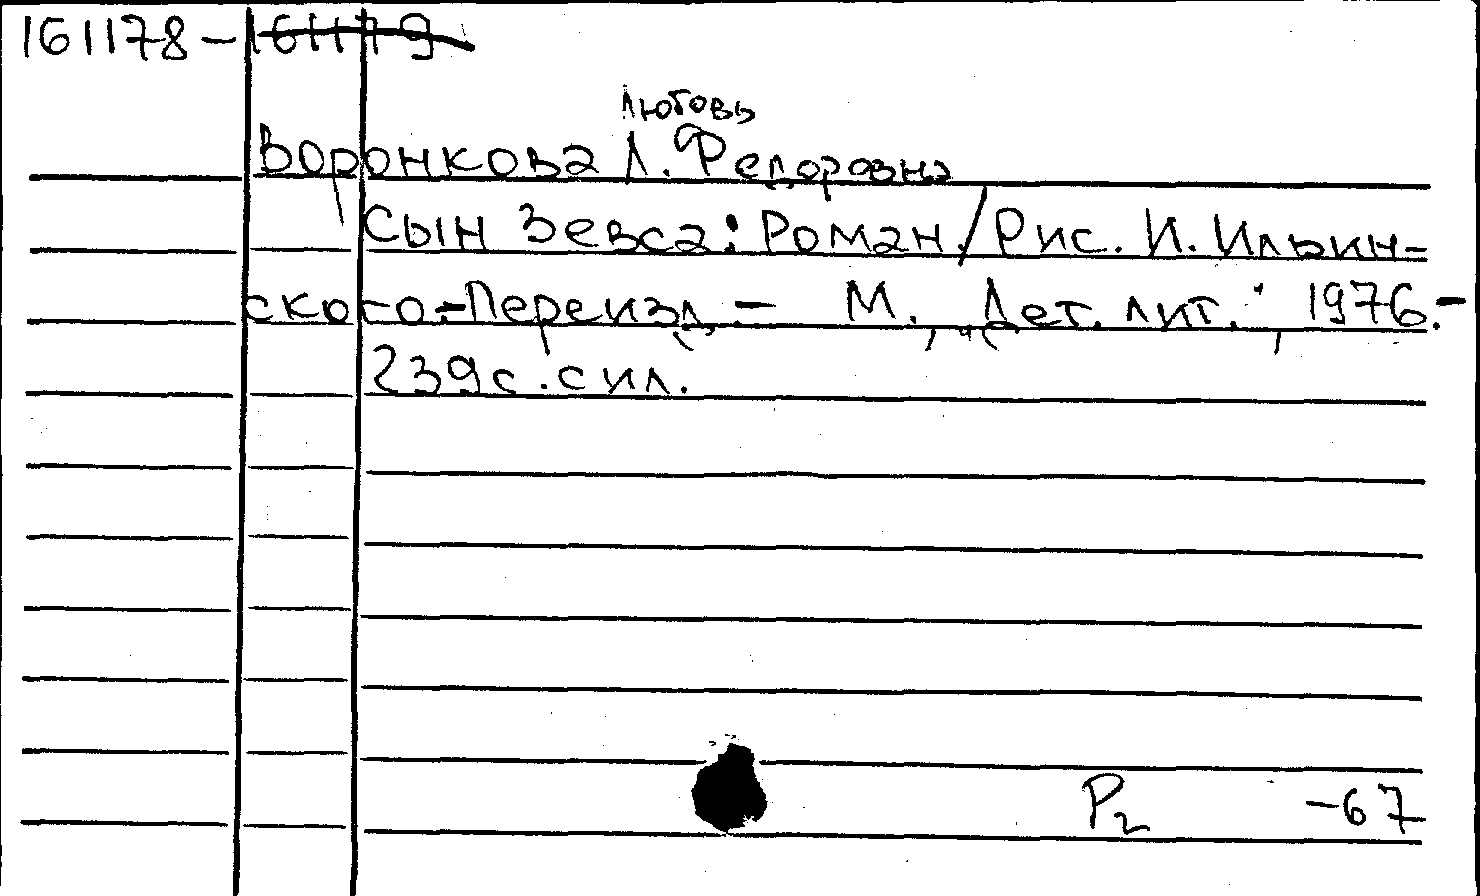 161178-161179
Любовь
Воронкова Л. Федоровна
Сын Зевса: Роман./Рис. И. Ильин-
ского.-Переизд. - М., "Дет. лит.", 1976.-
239с. с ил.
Р2 -67